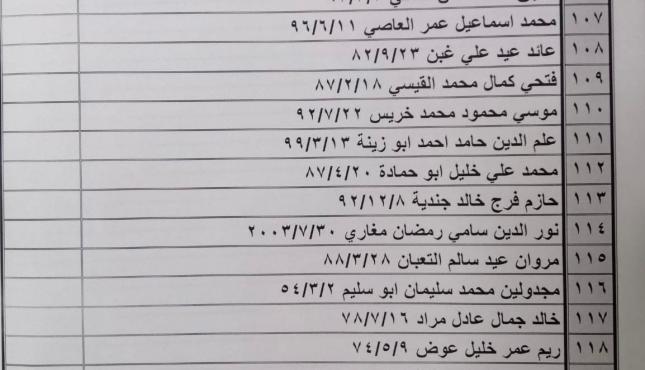 ١٠٧ محمد اسماعيل عمر العاصي ٩٦/٦/١١
١٠٨ عائد عيد علي غبن ٨٢/٩/٢٣
١٠٩ فتحي كمال محمد القيسي ٨٧/٢/١٨
١١٠ موسي محمود محمد خريس ٩٢/٧/٢٢
١١١ علم الدين حامد احمد ابو زينة ٩٩/٣/١٣
١١٢ محمد علي خليل ابو حمادة ٨٧/٤/٢٠
١١٣ حازم فرج خالد جندية ٩٢/١٢/٨
١١٤ نور الدين سامي رمضان مغاري ٢٠٠٣/٧/٣٠
١١٥ مروان عيد سالم التعبان ٨٨/٣/٢٨
١١٦ مجدولين محمد سليمان ابو سليم ٥٤/٣/٢
١١٧ خالد جمال عادل مراد ٧٨/٧/١٦
١١٨ ريم عمر خليل عوض ٧٤/٥/٩